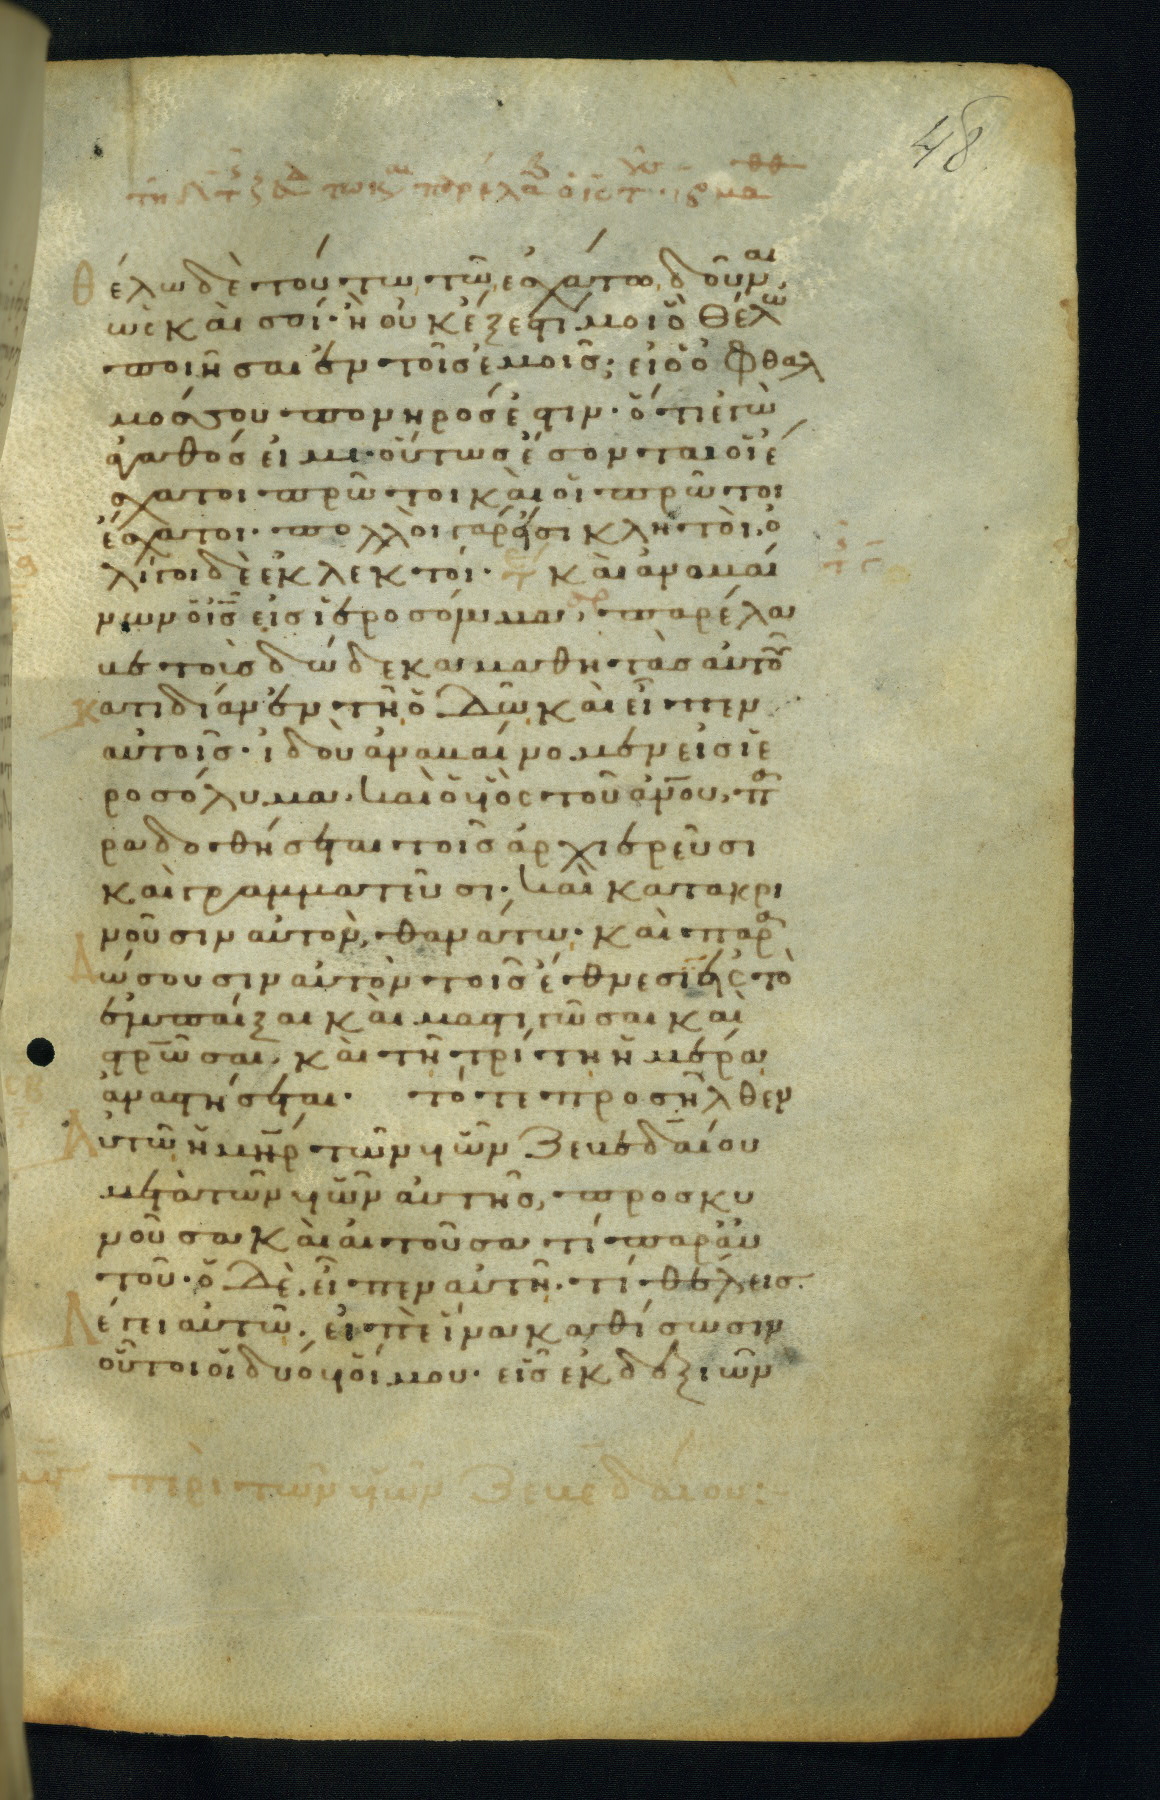 48
θέλω δὲ τούτω τῶ ἐσχάτω δοῦναι
ὡς καὶ σοί· ἢ οὐκ ἔξεστί μοι ὃ θέλω
ποιῆσαι ἐν τοῖς ἐμοῖς; εἰ ὁ ὀφθαλ
μός σου πονηρός ἐστιν· ὅτι ἐγὼ
ἀγαθός εἰμι· οὕτως ἔσονται οἱ ἔ
σχατοι πρῶτοι καὶ οἱ πρῶτοι
ἔσχατοι· πολλοὶ γάρ εἰσι κλητοὶ, ὀ
λίγοι δὲ ἐκλεκτοί· καὶ ἀναβαί
νων ὁ ις εἰς ἱεροσόλυμα, παρέλα
βε τοὺς δώδεκα μαθητὰς αὐτοῦ
κατιδίαν ἐν τῆ ὁδῶ, καὶ εἶπεν
αὐτοῖς· ἰδοὺ ἀναβαίνομεν εἰς ἱε
ροσόλυμα· καὶ ὁ υἱὸς τοῦ ανου, πα
ραδοθήσεται τοῖς ἀρχιερεῦσι
καὶ γραμματεῦσι· καὶ κατακρι
νοῦσιν αὐτὸν, θανάτω· καὶ παρα
δώσουσιν αὐτὸν τοῖς ἔθνεσιν εἰς τὸ
ἐμπαῖξαι καὶ μαστιγῶσαι καὶ
στρωσαι· καὶ τῆ τρίτη ἡμέρα
ἀναστήσεται· τότε προσῆλθεν
αὐτῶ ἡ μηρ τῶν υἱῶν ζεβεδαίου
μετὰ τῶν υἱῶν αὐτῆς, προσκυ
νοῦσα καὶ αἰτοῦσα τί παρ' αὐ
τοῦ· ὁ δὲ, εἶπεν αὐτῆ· τί θέλεις·
λέγει αὐτῶ· εἰπὲ ἵνα καθίσωσιν
οὗτοι οἱ δύο υἱοί μου· εἷς ἐκ δεξιῶν
περὶ τῶν υἱῶν ζεβεδαίου: